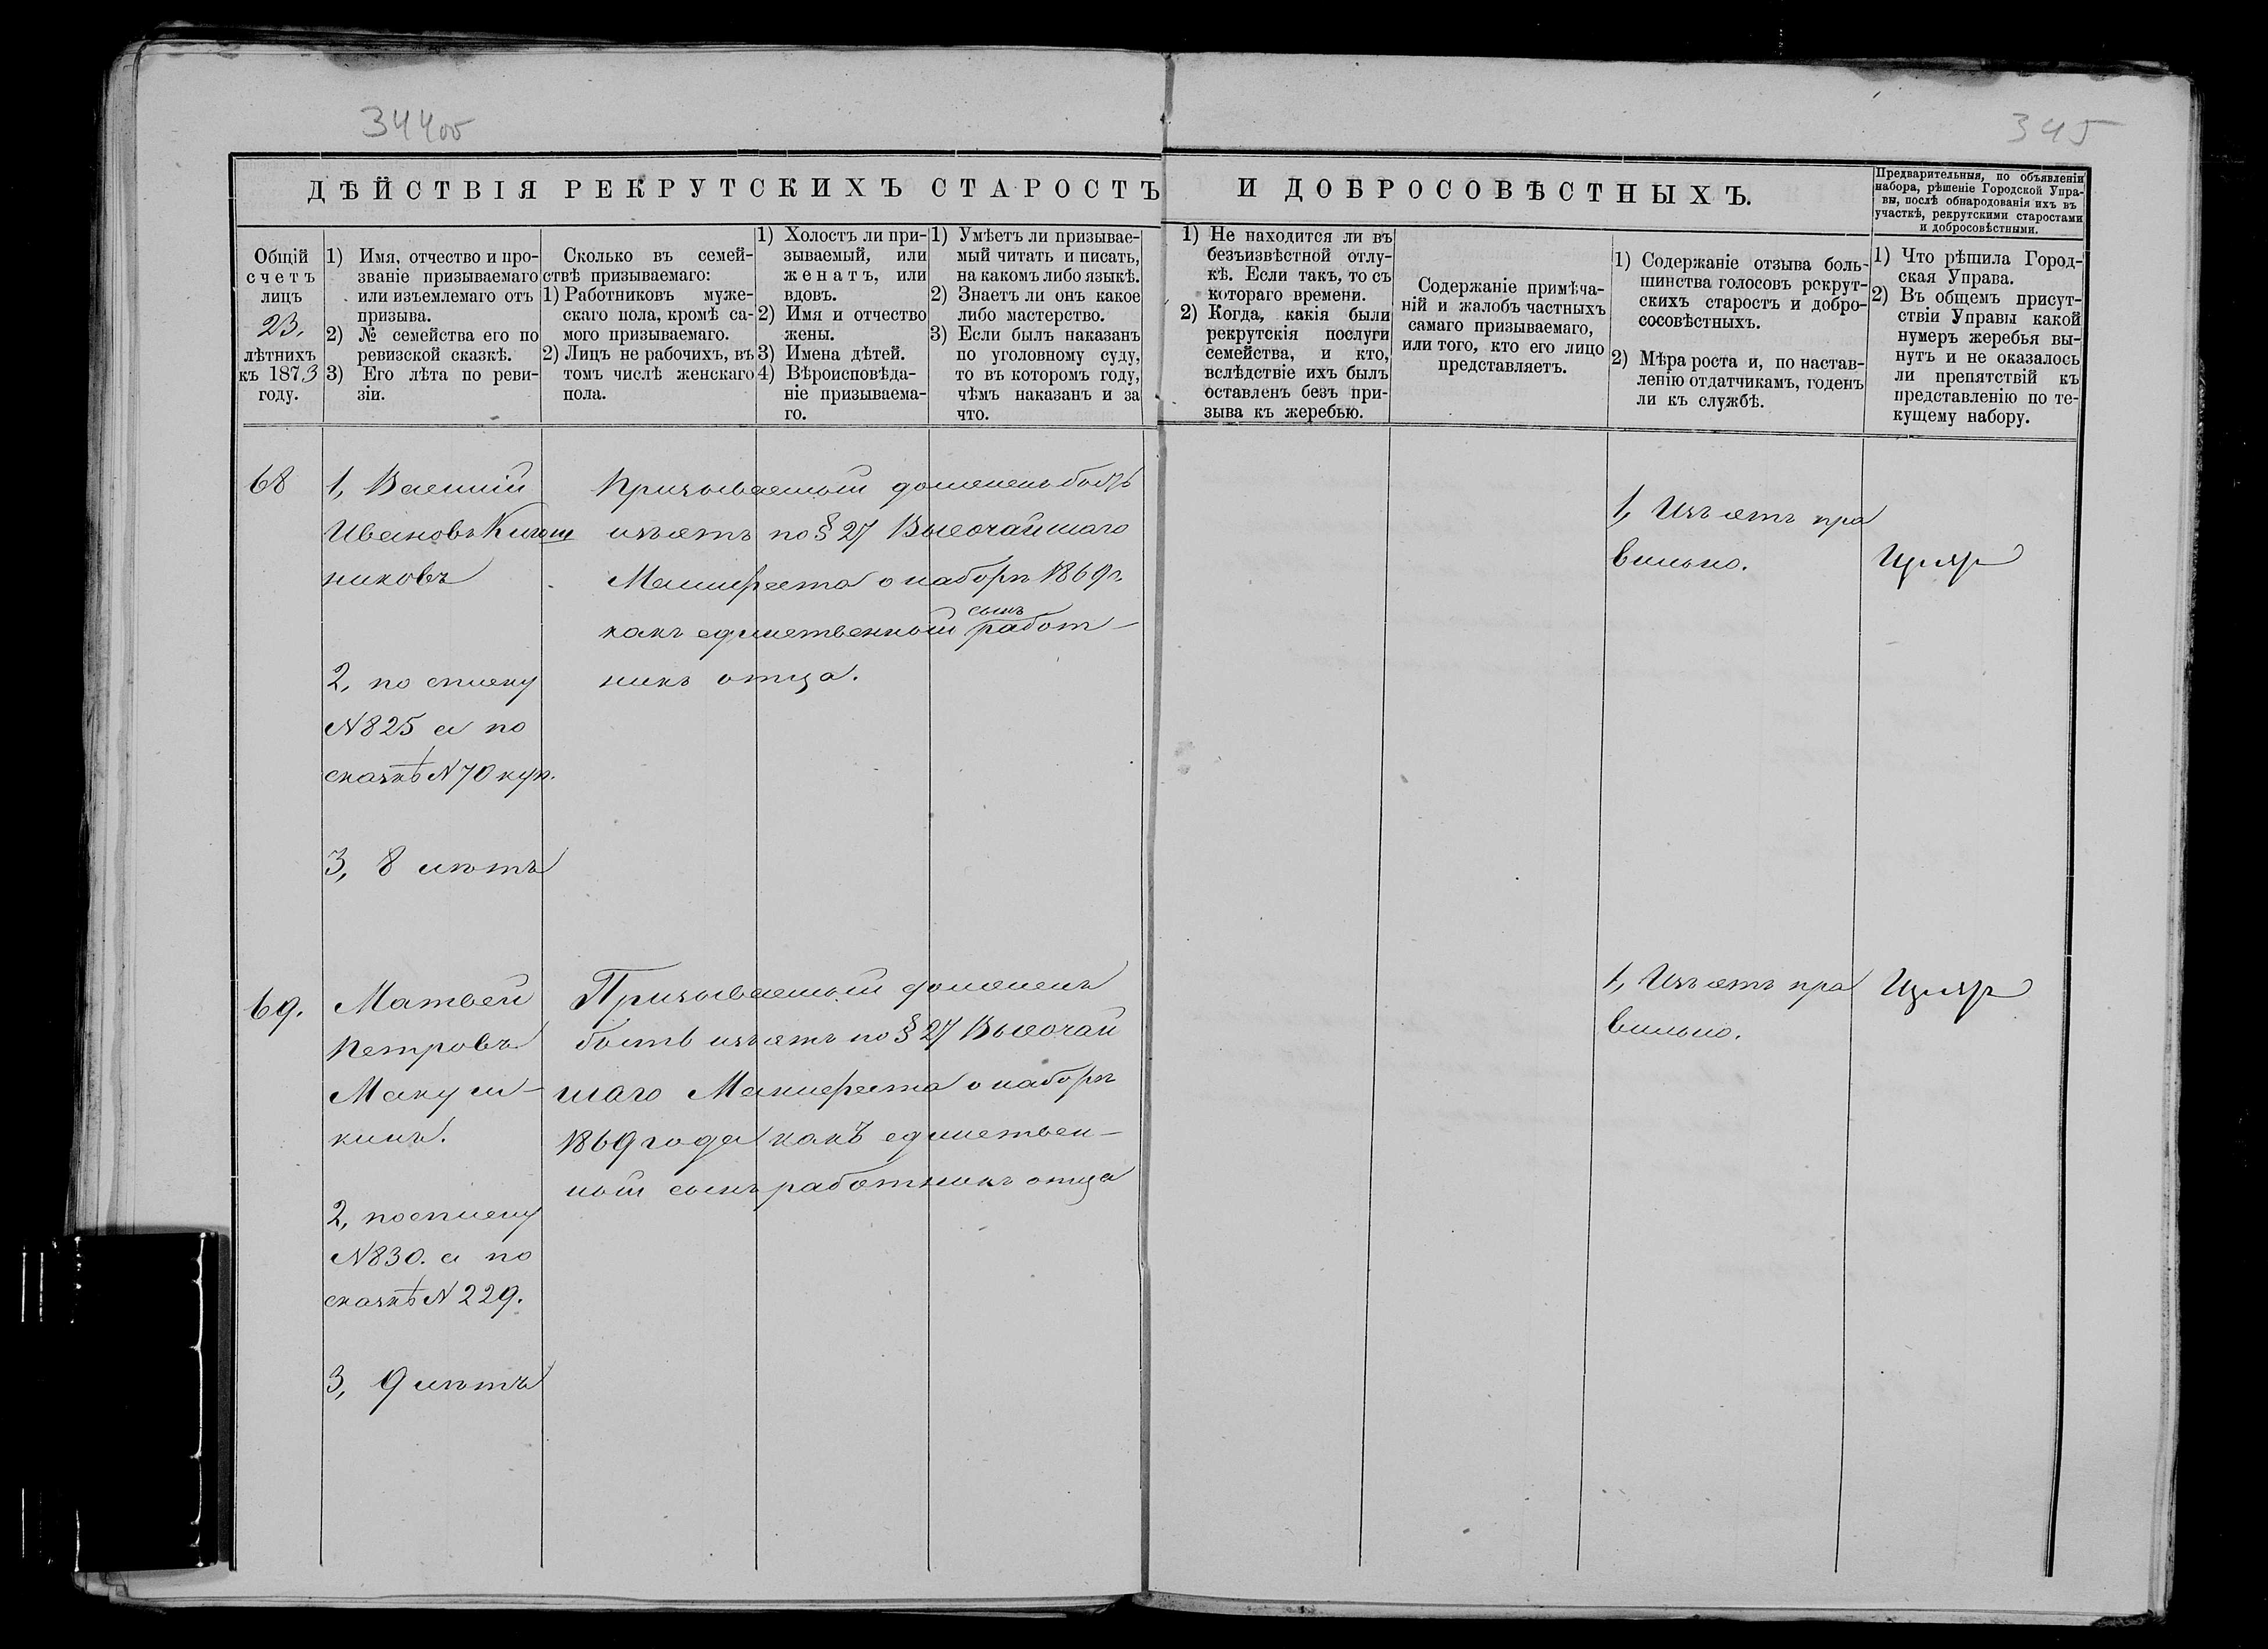 344об
345
ДѢЙСТВІЯ РЕКРУТСКИХЪ СТАРОСТЪ И ДОБРОСОВѢСТНЫХЪ.
Предварительныя, по объявленіи
набора, рѣшеніе Городской Упра-
вы, послѣ обнародованія ихъ въ
участкѣ, рекрутскими старостами
и добросовѣстными.
Общій
счетъ
лицъ
23.
лѣтнихъ
къ 1873
году.
1) Имя, отчество и про-
званіе призываемаго
или изъемлемаго отъ
призыва.
2) № семейства его по
ревизской сказкѣ.
3) Его лѣта по реви-
зіи.
Сколько въ семей-
ствѣ призываемаго:
1) Работниковъ муже-
скаго пола, кромѣ са-
мого призываемаго.
2) Лицъ не рабочихъ, въ
томъ числѣ женскаго
пола.
1) Холостъ ли при-
зываемый, или
женатъ, или
вдовъ.
2) Имя и отчество
жены.
3) Имена дѣтей.
4) Вѣроисповѣда-
ніе призываема-
го.
1) Умѣетъ ли призывае-
мый читать и писать,
на какомъ либо языкѣ.
2) Знаетъ ли онъ какое
либо мастерство.
3) Если былъ наказанъ
по уголовному суду,
то въ которомъ году,
чѣмъ наказанъ и за
что.
1) Не находится ли въ
безъизвѣстной отлу-
кѣ. Если такъ, то съ
котораго времени.
2) Когда, какія были
рекрутскія послуги
семейства, и кто,
вслѣдствіе ихъ былъ
оставленъ безъ при-
зыва къ жеребью.
Содержаніе примѣча-
ній и жалобъ частныхъ
самаго призываемаго,
или того, кто его лицо
представляетъ.
1) Содержаніе отзыва боль-
шинства голосовъ рекрут-
скихъ старостъ и добро-
сосовѣстныхъ.
2) Мѣра роста и, по настав-
ленію отдатчикамъ, годенъ
ли къ службѣ.
1) Что рѣшила Город-
ская Управа.
2) Въ общемъ присут-
ствіи Управы какой
нумеръ жеребья вы-
нутъ и не оказалось
ли препятствій къ
представленію по те-
кущему набору.
68
1, Василій
Ивановъ
никовъ
2, по списку
№825 а по
сказкѣ №70 куп.
3, 8 лѣтъ
Призываемый долженъ быть
изъятъ по § 27 Высочайшаго
Манифеста о наборѣ 1869 г.
сынъ
какъ единственный работ-
никъ отца.
1, Изъятъ пра
вильно.
69.
Матвей
Петровъ
Макуш-
кинъ.
2, по списку
№830. а по
сказкѣ №229.
3, 9 лѣтъ
Призываемый долженъ
быть изъятъ по § 27 Высочай
шаго Манифеста о наборѣ
1869 года какъ единствен-
ный сынъ работникъ отца
1, Изъятъ пра
вильно.